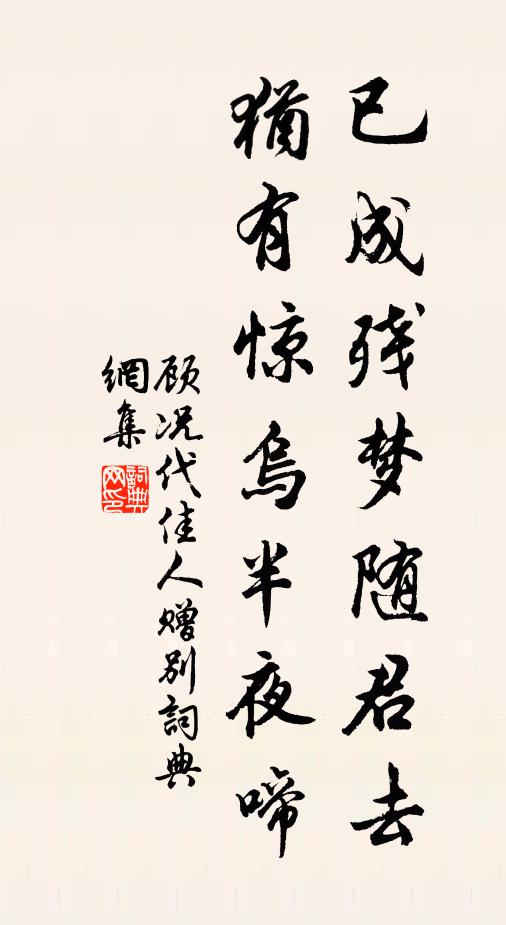 已成残梦随君去
猶有惊烏半夜啼
顾况代佳人赠别詞典
網集
詞典
网印